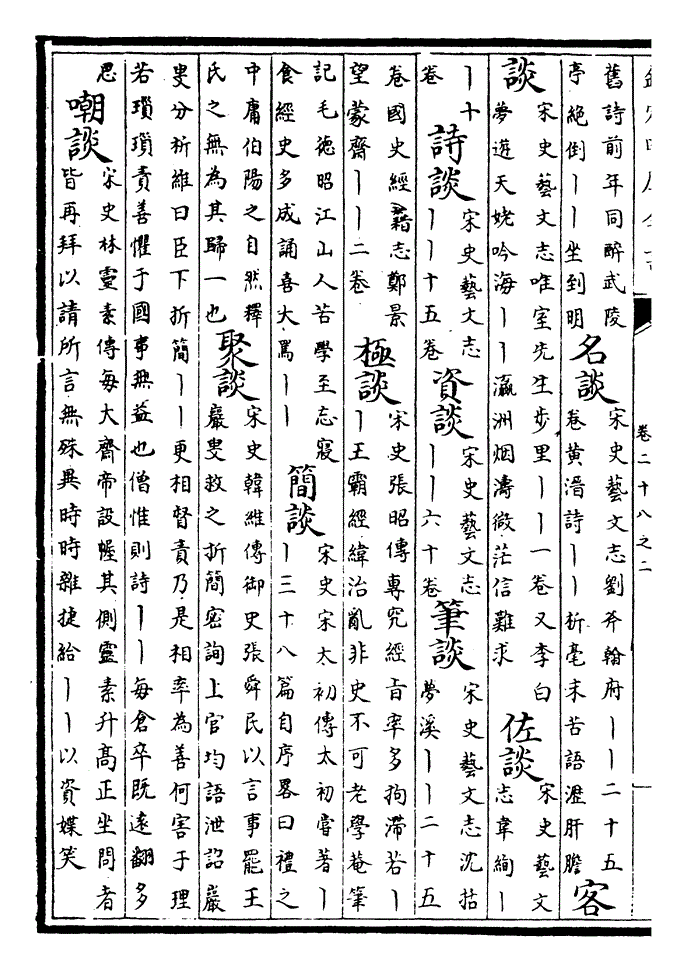 卷二十八之二
舊詩前年同醉武陵
亭絶倒丨丨坐到明
名談
宋史藝文志劉斧翰府丨丨二十五
卷黄溍詩丨丨析毫末苦語瀝肝膽
客
談
宋史藝文志唯室先生歩里丨丨一卷又李白
夢遊天姥吟海丨丨瀛洲烟濤微茫信難求
佐談
宋史藝文
志韋絢丨
丨十
卷
詩談
宋史藝文志
丨丨十五卷
資談
宋史藝文志
丨丨六十卷
筆談
宋史藝文志沈括
夢溪丨丨二十五
卷國史經籍志鄭景
望蒙齋丨丨二卷
極談
宋史張昭傳專究經旨率多拘滯若丨
丨王霸經緯治亂非史不可老學菴筆
記毛德昭江山人苦學至志寢
食經史多成誦喜大罵丨丨
簡談
宋史宋太初傳太初嘗著丨
丨三十八篇自序畧曰禮之
中庸伯陽之自然釋
氏之無為其歸一也
聚談
宋史韓維傳御史張舜民以言事罷王
巖叟救之折簡密詢上官均語泄詔巖
叟分析維曰臣下折簡丨丨更相督責乃是相率為善何害于理
若瑣瑣責善懼于國事無益也僧惟則詩丨丨每倉卒既遠翻多
思
嘲談
宋史林靈素傳每大齋帝設幄其側靈素升高正坐問者
皆再拜以請所言無殊異時時雜捷給丨丨以資媟笑